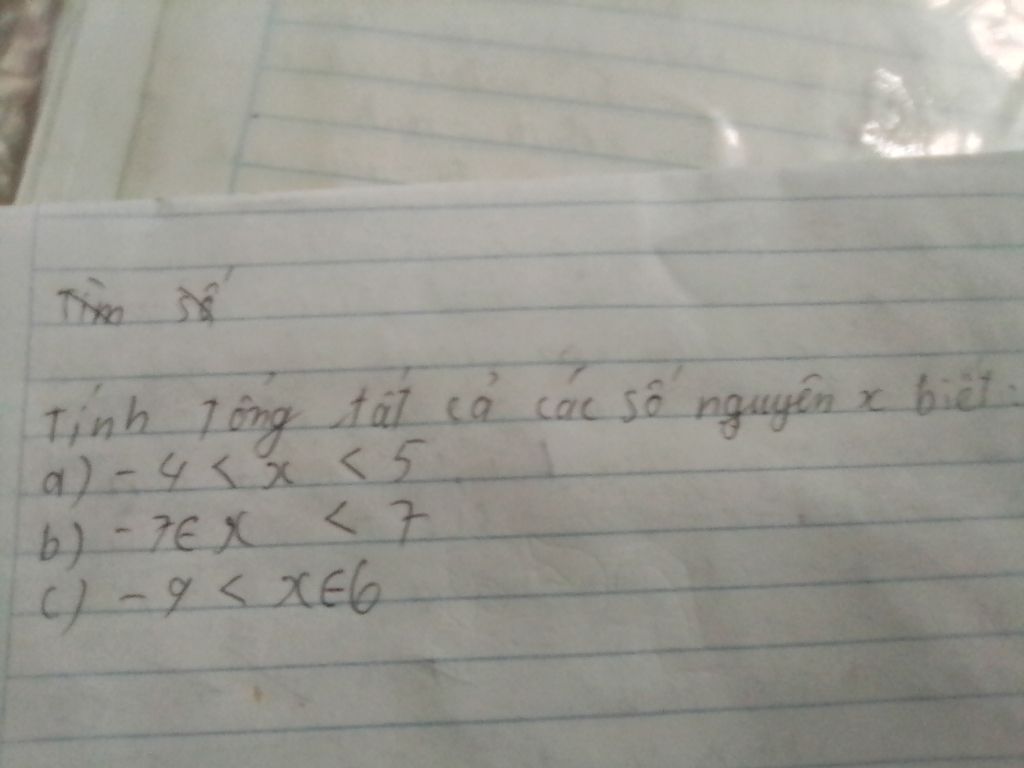 Tìm số
Tính Tổng tất cả các số nguyên x biết:
a) - 4 < x < 5
b) - 7 ∈ x < 7
c) - 9 < x ∈ 6